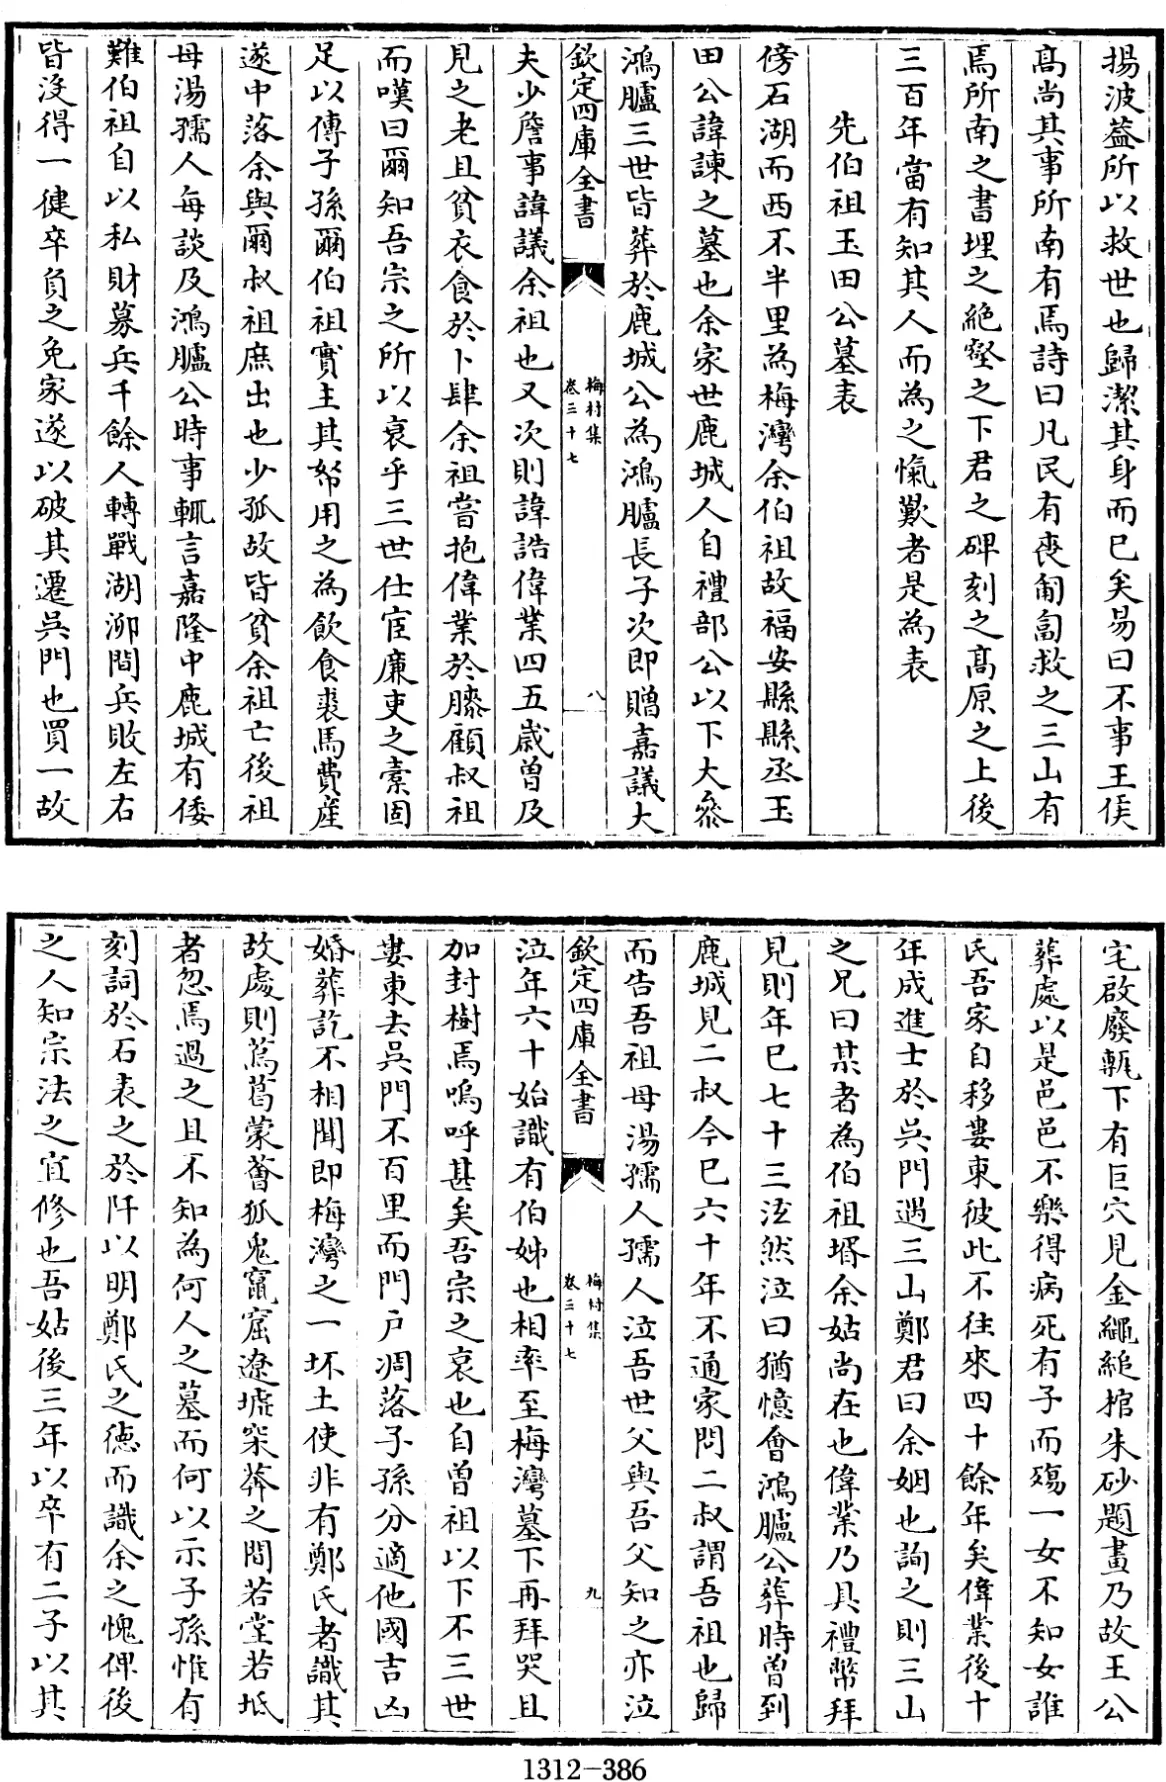 揚波葢所以救世也歸潔其身而已矣易曰不事王侯
高尚其事所南有焉詩曰凡民有喪匍匐救之三山有
焉所南之書埋之絶壑之下君之碑刻之高原之上後
三百年當有知其人而為之愾歎者是為表
先伯祖玉田公墓表
傍石湖而西不半里為梅灣余伯祖故福安縣縣丞玉
田公諱諫之墓也余家世鹿城人自禮部公以下大叅
鴻臚三世皆葬於鹿城公為鴻臚長子次即贈嘉議大
欽定四庫全書
梅村集
卷三十七
八
夫少詹事諱議余祖也又次則諱誥偉業四五歲曽及
見之老且貧衣食於卜肆余祖嘗抱偉業於膝顧叔祖
而嘆曰爾知吾宗之所以衰乎三世仕宦廉吏之橐固
足以傳子孫爾伯祖實主其帑用之為飲食裘馬費産
遂中落余與爾叔祖庶出也少孤故皆貧余祖亡後祖
母湯孺人每談及鴻臚公時事輒言嘉隆中鹿城有倭
難伯祖自以私財募兵千餘人轉戰湖泖間兵敗左右
皆沒得一健卒負之免家遂以破其遷吳門也買一故
宅啟廢甎下有巨穴見金繩縋棺朱砂題畫乃故王公
葬處以是邑邑不樂得病死有子而殤一女不知女誰
氏吾家自移婁東彼此不往來四十餘年矣偉業後十
年成進士於吳門遇三山鄭君曰余姻也詢之則三山
之兄曰某者為伯祖壻余姑尚在也偉業乃具禮幣拜
見則年已七十三泫然泣曰猶憶會鴻臚公葬時曽到
鹿城見二叔今已六十年不通家問二叔謂吾祖也歸
而告吾祖母湯孺人孺人泣吾世父與吾父知之亦泣
欽定四庫全書
梅村集
卷三十七
九
泣年六十始識有伯姊也相率至梅灣墓下再拜哭且
加封樹焉嗚呼甚矣吾宗之衰也自曽祖以下不三世
婁東去吳門不百里而門戶凋落子孫分適他國吉凶
婚葬訖不相聞即梅灣之一坏土使非有鄭氏者識其
故處則蔦葛蒙薈狐鬼竄窟遼墟罙莽之間若堂若坻
者忽焉過之且不知為何人之墓而何以示子孫惟有
刻詞於石表之於阡以明鄭氏之德而識余之愧俾後
之人知宗法之宜修也吾姑後三年以卒有二子以其
1312-386